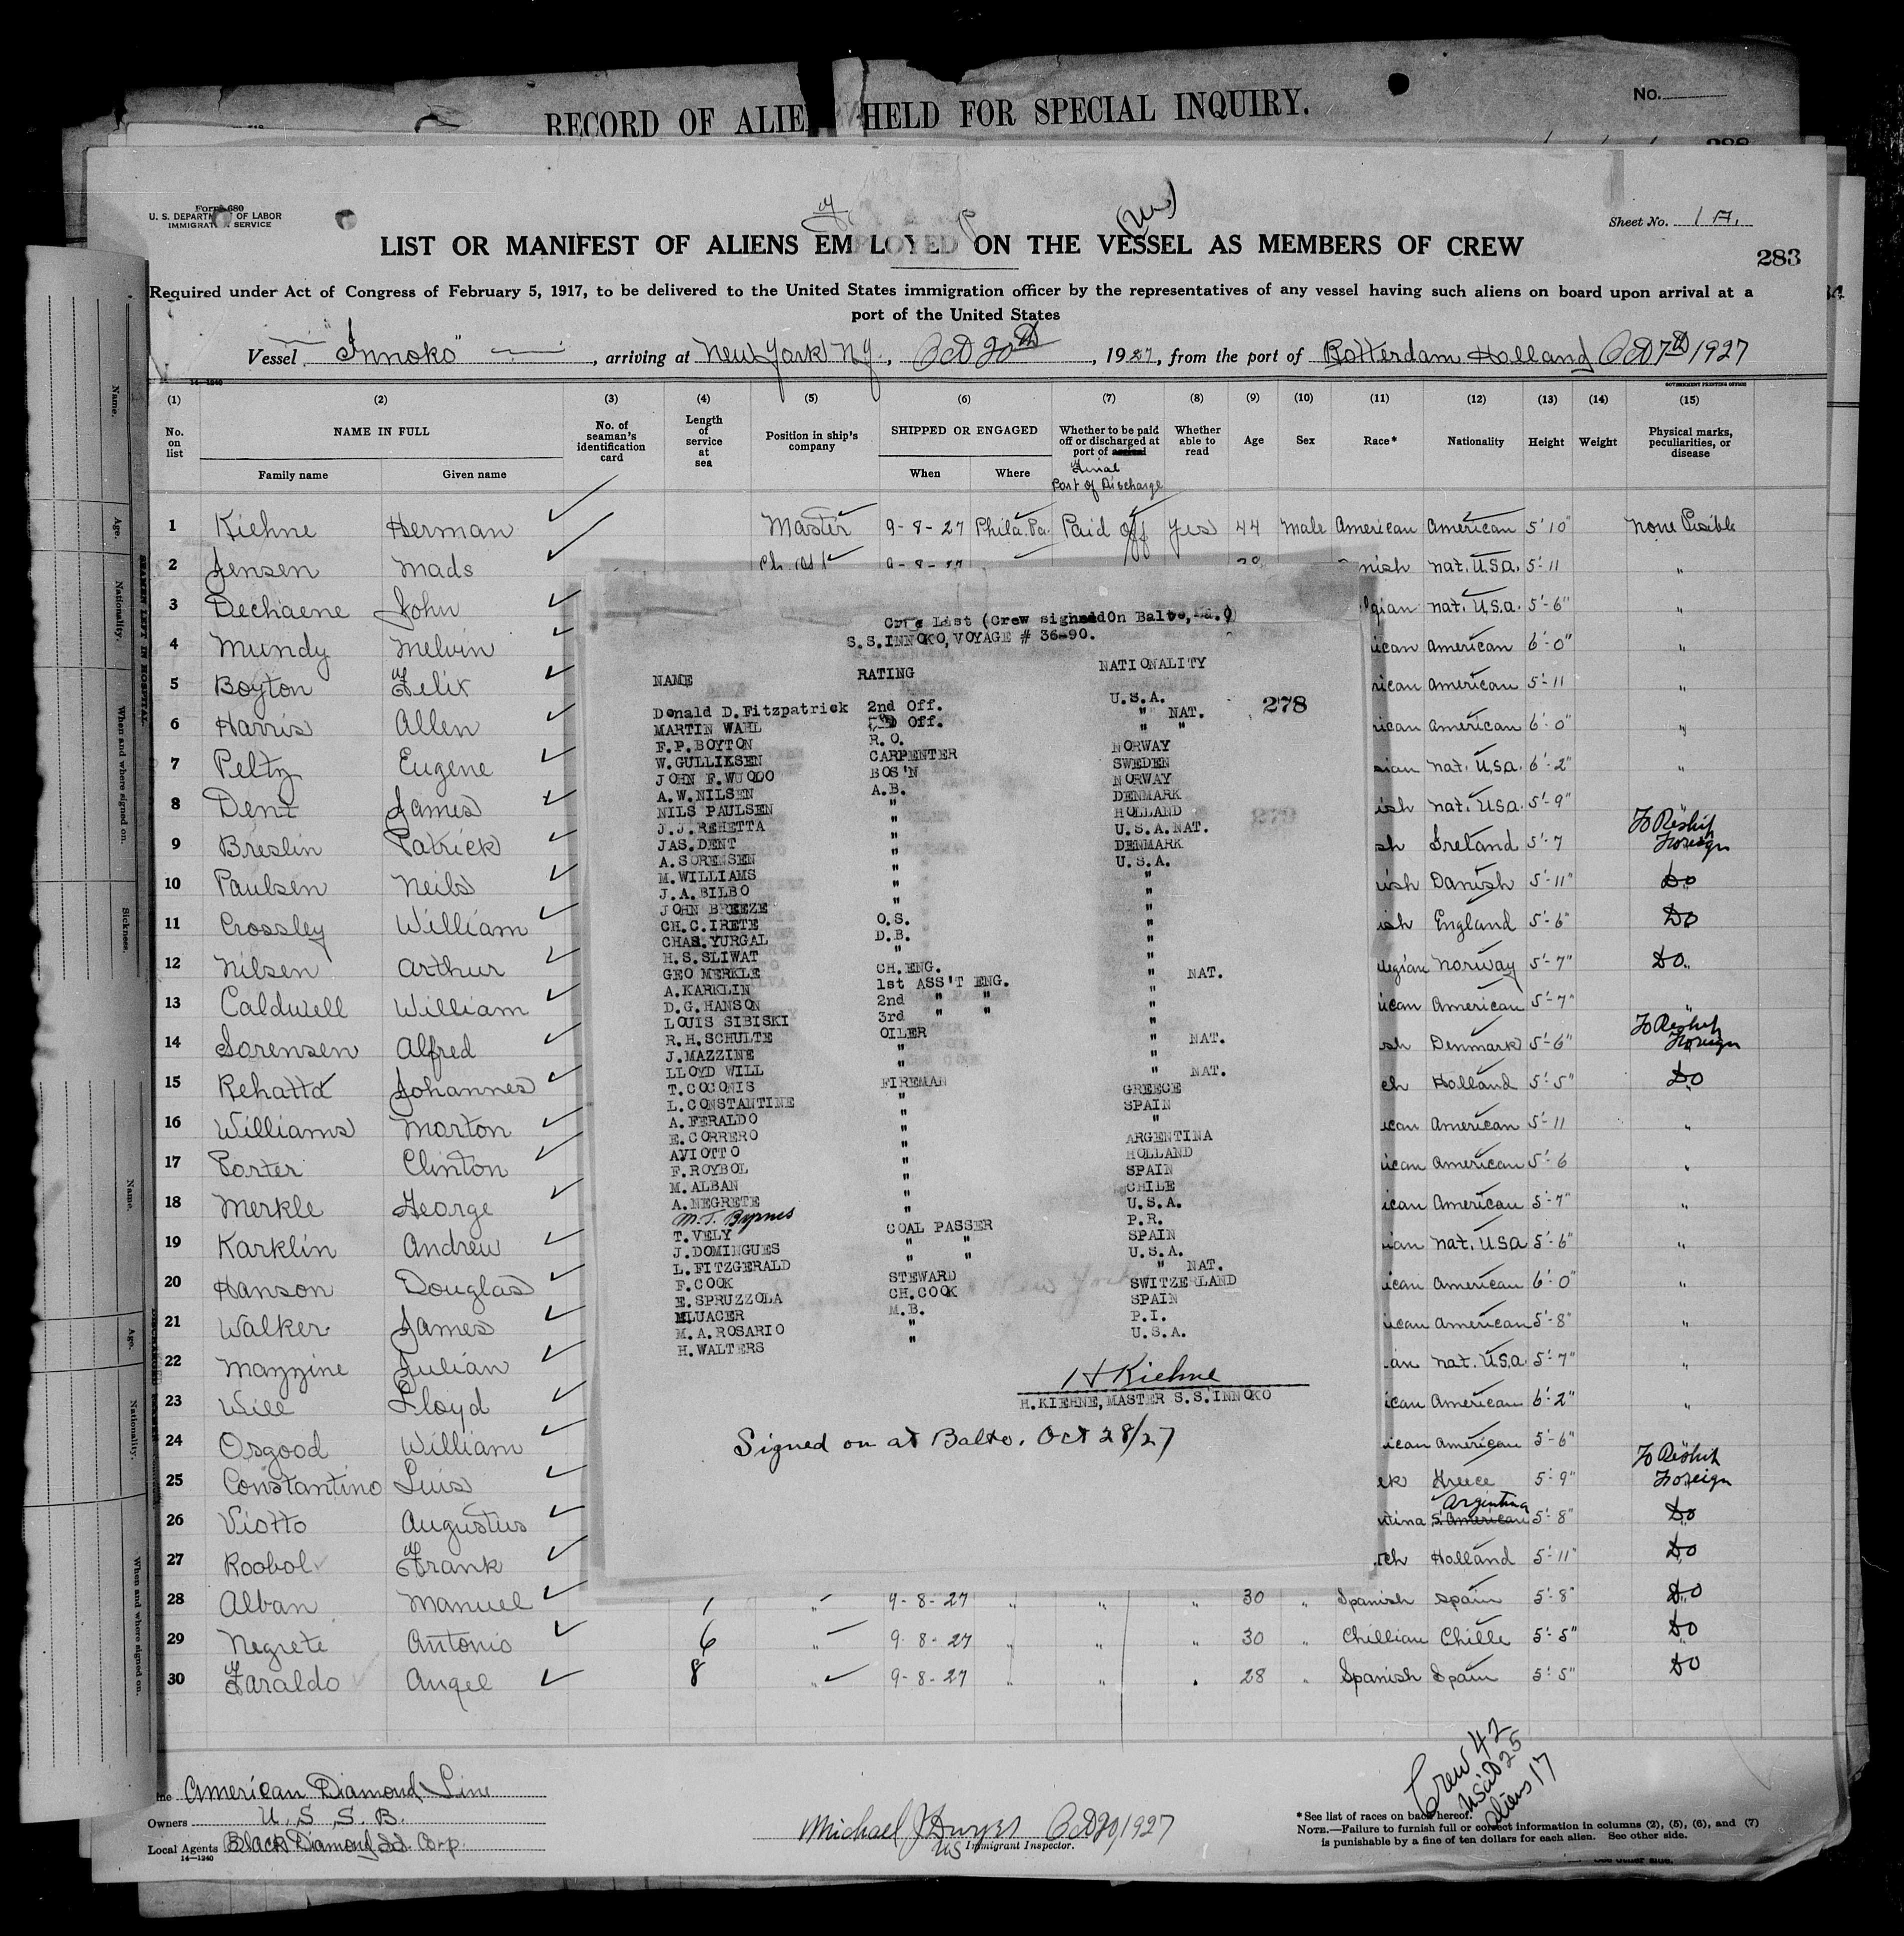 RECORD OF ALIE HELD FOR SPECIAL INQUIRY.
No.
288
Form 680
U. S. DEPARTM OF LABOR
IMMIGRAT N SERVICE
Sheet No. 1 A.
LIST OR MANIFEST OF ALIENS EMPLOYED ON THE VESSEL AS MEMBERS OF CREW
283
Required under Act of Congress of February 5, 1917, to be delivered to the United States immigration officer by the representatives of any vessel having such aliens on board upon arrival at a
port of the United States
Vessel "Innoko", arriving at New York N.Y., Oct 20th, 1927, from the port of Rotterdam Holland Oct 7th 1927
14—1240
GOVERNMENT PRINTING OFFICE
(1) (2) (3) (4) (5) (6) (7) (8) (9) (10) (11) (12) (13) (14) (15)
No. on list
NAME IN FULL
Family name Given name
No. of seaman's identification card
Length of service at sea
Position in ship's company
SHIPPED OR ENGAGED
When Where
Whether to be paid off or discharged at port of arrival
Final
Port of Discharge
Whether able to read
Age
Sex
Race*
Nationality
Height
Weight
Physical marks, peculiarities, or disease
1 Kiehne Herman Master 9-8-27 Phila. Pa. Paid off yes 44 Male American American 5'10" None Visible
2 Jensen Mads 9-8-27 nish nat. U.S.A. 5'-11 "
3 Dechaene John gian nat. U.S.A. 5'-6" "
4 Mundy Melvin ican American 6'-0" "
5 Boyton Felix rican American 5'-11 "
6 Harris Allen rican American 6'-0" "
7 Peltz Eugene sian nat. U.S.A. 6'-2" "
8 Dent James ish nat. U.S.A. 5'-9" "
9 Breslin Patrick sh Ireland 5'-7 To Reship Foreign
10 Paulsen Neils ish Danish 5'-11" Do
11 Crossley William ish England 5'-6" Do
12 Nilsen Arthur egian Norway 5'-7" Do
13 Caldwell William ican American 5'-7" "
14 Sorensen Alfred sh Denmark 5'-6" To Reship Foreign
15 Rehatta Johannes ch Holland 5'-5" Do
16 Williams Morton ican American 5'-11 "
17 Porter Clinton ican American 5'-6 "
18 Merkle George ican American 5'-7" "
19 Karklin Andrew ian nat. U.S.A 5'-6" "
20 Hanson Douglas ican American 6'-0" "
21 Walker James ican American 5'-8" "
22 Mazzine Julian ian nat. U.S.A. 5'-7" "
23 Will Lloyd ican American 6'-2" "
24 Osgood William ican American 5'-6" "
25 Constantino Luis ek Greece 5'-9" To Reship Foreign
26 Viotto Augustus ntina S. American Argentina 5'-8" Do
27 Roobol Frank tch Holland 5'-11" Do
28 Alban Manuel 1 " 9-8-27 " " " 30 " Spanish Spain 5'-8" Do
29 Negrete Antonio 6 " 9-8-27 " " " 30 " Chillian Chille 5'-5" Do
30 Faraldo Angel 8 " 9-8-27 " " " 28 " Spanish Spain 5'-5" Do
Crew List (Crew signed On Balto, Md.)
S.S.INNOKO, VOYAGE # 36-90.
NAME RATING NATIONALITY
278
279
Donald D.Fitzpatrick 2nd Off. U.S.A.
MARTIN WAHL Off. " NAT.
F.P.BOYTON R.O. " "
W.GULLIKSEN CARPENTER NORWAY
JOHN F.WUODO BOS'N SWEDEN
A.W.NILSEN A.B. NORWAY
NILS PAULSEN " DENMARK
J.J.REHETTA " HOLLAND
JAS.DENT " U.S.A.NAT.
A.SORENSEN " DENMARK
M.WILLIAMS " U.S.A.
J.A.BILBO " "
JOHN BREEZE " "
CH.C.IRETE O.S. "
CHAS.YURGAL D.B. "
H.S.SLIWAT " "
GEO MERKLE CH.ENG. "
A.KARKLIN 1st ASS'T ENG. " NAT.
D.G.HANSON 2nd " " "
LOUIS SIBISKI 3rd " " "
R.H.SCHULTE OILER "
J.MAZZINE " " NAT.
LLOYD WILL " "
T.COCONIS FIREMAN " NAT.
L.CONSTANTINE " GREECE
A.FERALDO " SPAIN
E.CORRERO " "
AVIOTTO " ARGENTINA
F.ROYBOL " HOLLAND
M.ALBAN " SPAIN
A.NEGRETE " CHILE
M.T. Byrnes " U.S.A.
T.VELY COAL PASSER P.R.
J.DOMINGUES " " SPAIN
L.FITZGERALD " " U.S.A.
F.COOK STEWARD " NAT.
E.SPRUZZOLA CH.COOK SWITZERLAND
ELUACER M.B. SPAIN
M.A.ROSARIO " P.I.
H.WALTERS " U.S.A.
H Kiehne
H.KIEHNE, MASTER S.S.INNOKO
Signed on at Balto. Oct 28/27
American Diamond Line
Owners U. S. S. B.
Local Agents Black Diamond SS. Corp.
14—1240
Michael J Dwyer Oct 20, 1927
US Immigrant Inspector.
Crew 42
USC 25
Aliens 17
*See list of races on back hereof.
NOTE.—Failure to furnish full or correct information in columns (2), (5), (6), and (7)
is punishable by a fine of ten dollars for each alien. See other side.
Name.
Age.
Nationality.
When and where signed on.
Sickness.
SEAMEN LEFT IN HOSPITAL
Name.
Age.
Nationality.
When and where signed on.